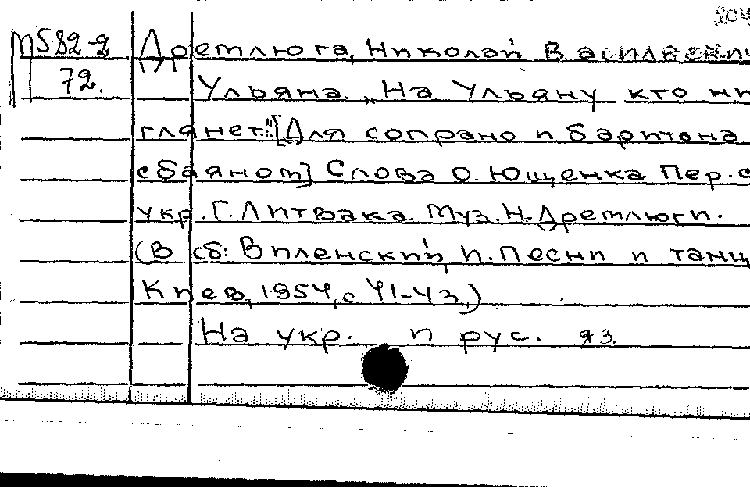 204
М582-2 Дремлюга, Николай Василевич
72. Ульяна. „На Ульяну кто ни
глянет..." [Для сопрано и баритона
с баяном] Слова О. Ющенка Пер. с
укр. Г. Литвака. Муз. Н. Дремлюги.
(В сб: Виленский, И. Песни и танц
Киев, 1954, с 41-43.)
На укр. и рус. яз.